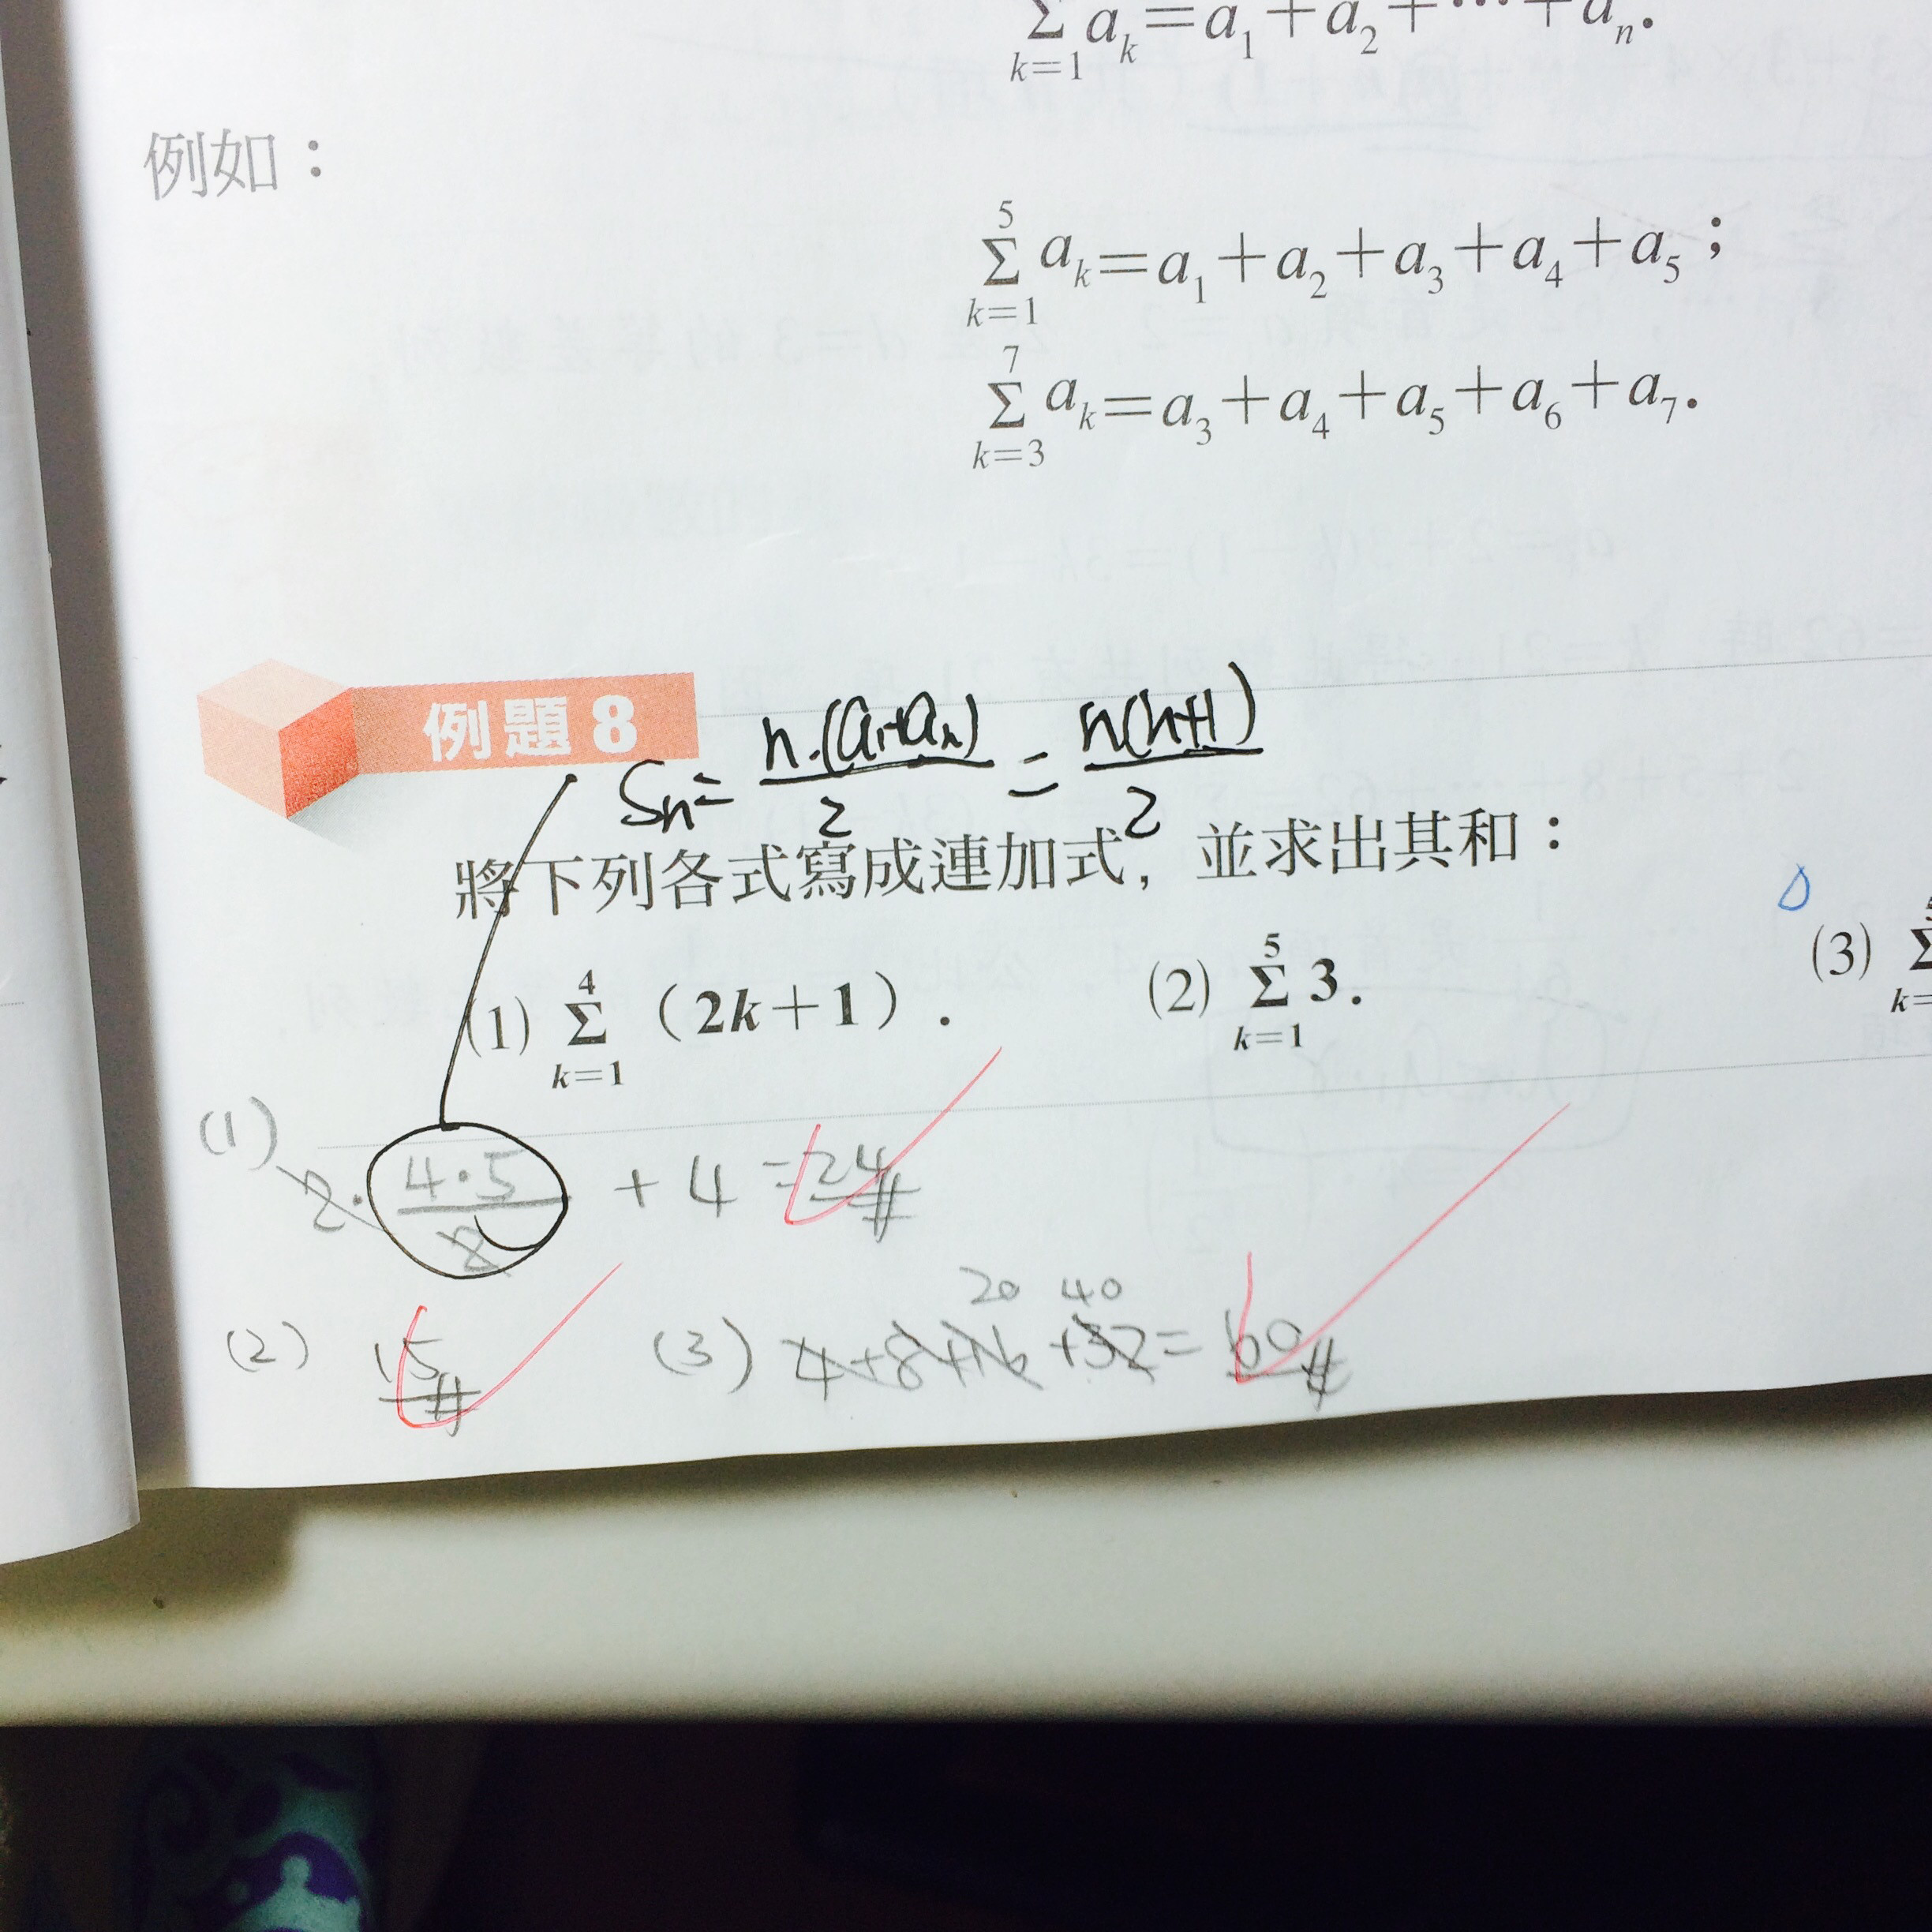 Σ a_k = a_1 + a_2 + ⋯ + a_n.
k=1
例如：
5
Σ a_k = a_1 + a_2 + a_3 + a_4 + a_5；
k=1
7
Σ a_k = a_3 + a_4 + a_5 + a_6 + a_7.
k=3
例題 8
Sn = n·(a₁+aₙ)/2 = n(n+1)/2
將下列各式寫成連加式，並求出其和：
(1) Σ_{k=1}^{4} （2k+1）. (2) Σ_{k=1}^{5} 3. (3) Σ k=
(1) 2· 4·5/2 + 4 = 24#
20 40
(2) 15# (3) 4+8+16+32 = 60#